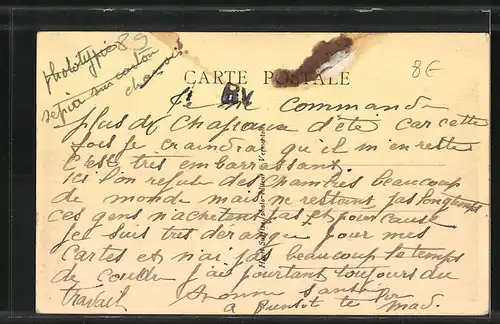 phototypie 89
sépia sur carton
chamois
8€
CARTE POSTALE
BV
Je ne commande
plus de chapeaux d'été car cette
fois je craindrai qu'il m'en reste
c'est tres embarrassant
Ici l'on refuse des chambres beaucoup
de monde mais ne restant pas longtemps
ces gens n'achetent pas et pour cause
Je suis tres derangée pour mes
cartes et n'ai pas beaucoup le temps
de coudre j'ai pourtant toujours du
travail Bonne santé
a bientot te Mad.